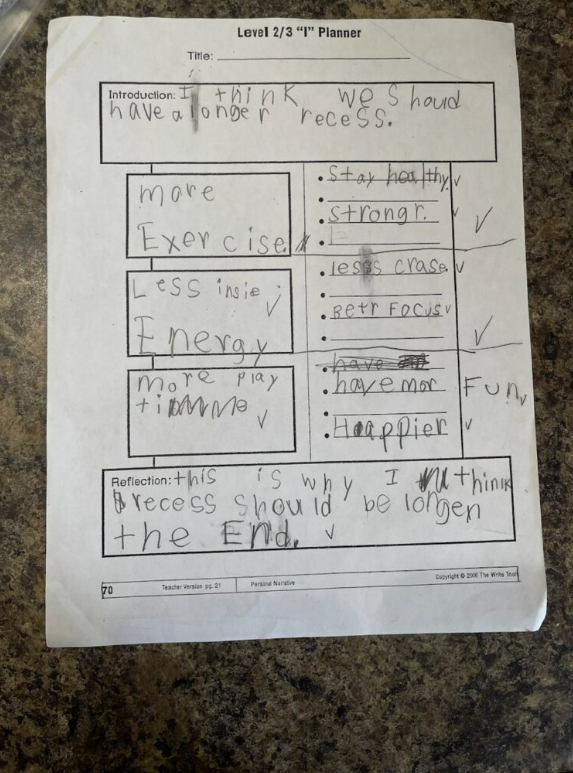 Level 2/3 "I" Planner
Title:
Introduction: I think we should
have a longer recess.
more
Exercise
• Stay healthy.
• strongr.
Less insie
Energy
• less crase.
• Betr Focus
more play
time
• have
• have mor Fun
• Happier
Reflection: this is why I think
recess should be longer
the End.
70 Teacher Version pg. 21 Personal Narrative Copyright © 2006 The Write Tools